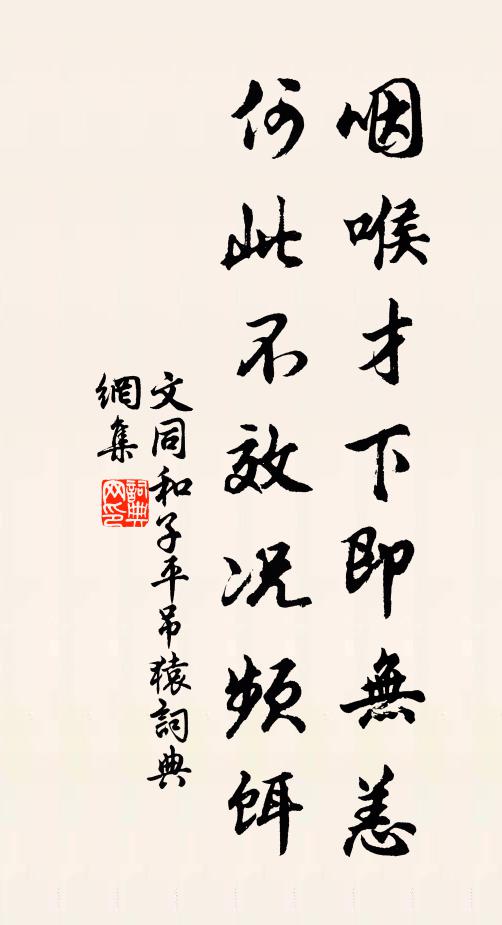 咽喉才下即無恙
何此不效况頻餌
文同和子平吊猿詞典
網集
詞典
网印